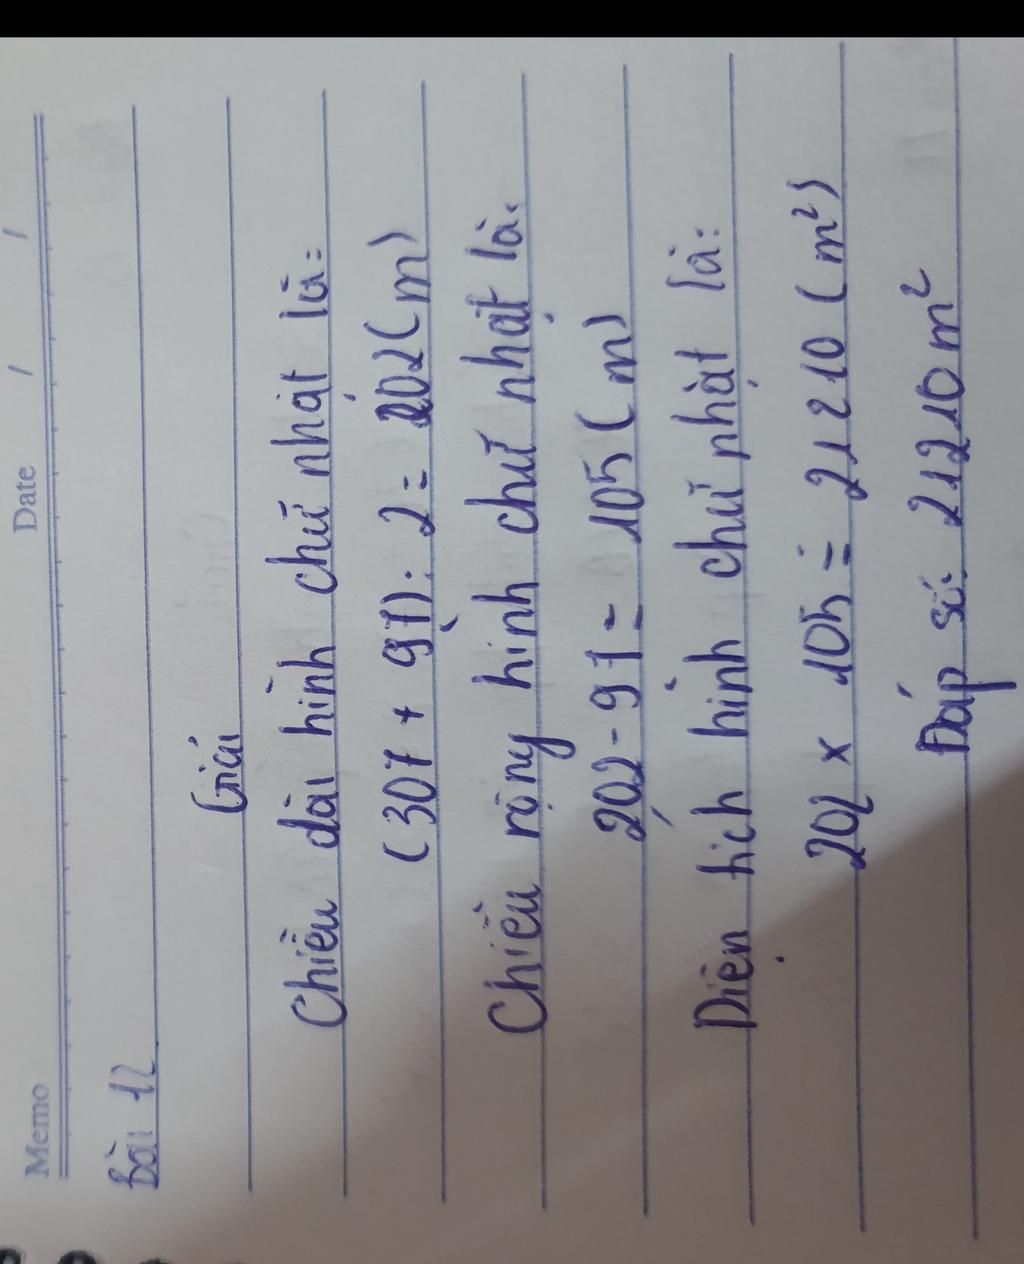 Memo Date / /
Bài 12
Giải
Chiều dài hình chữ nhật là:
(307 + 97) : 2 = 202 (m)
Chiều rộng hình chữ nhật là:
202 - 97 = 105 (m)
Diện tích hình chữ nhật là:
202 x 105 = 21210 (m²)
Đáp số: 21210 m²